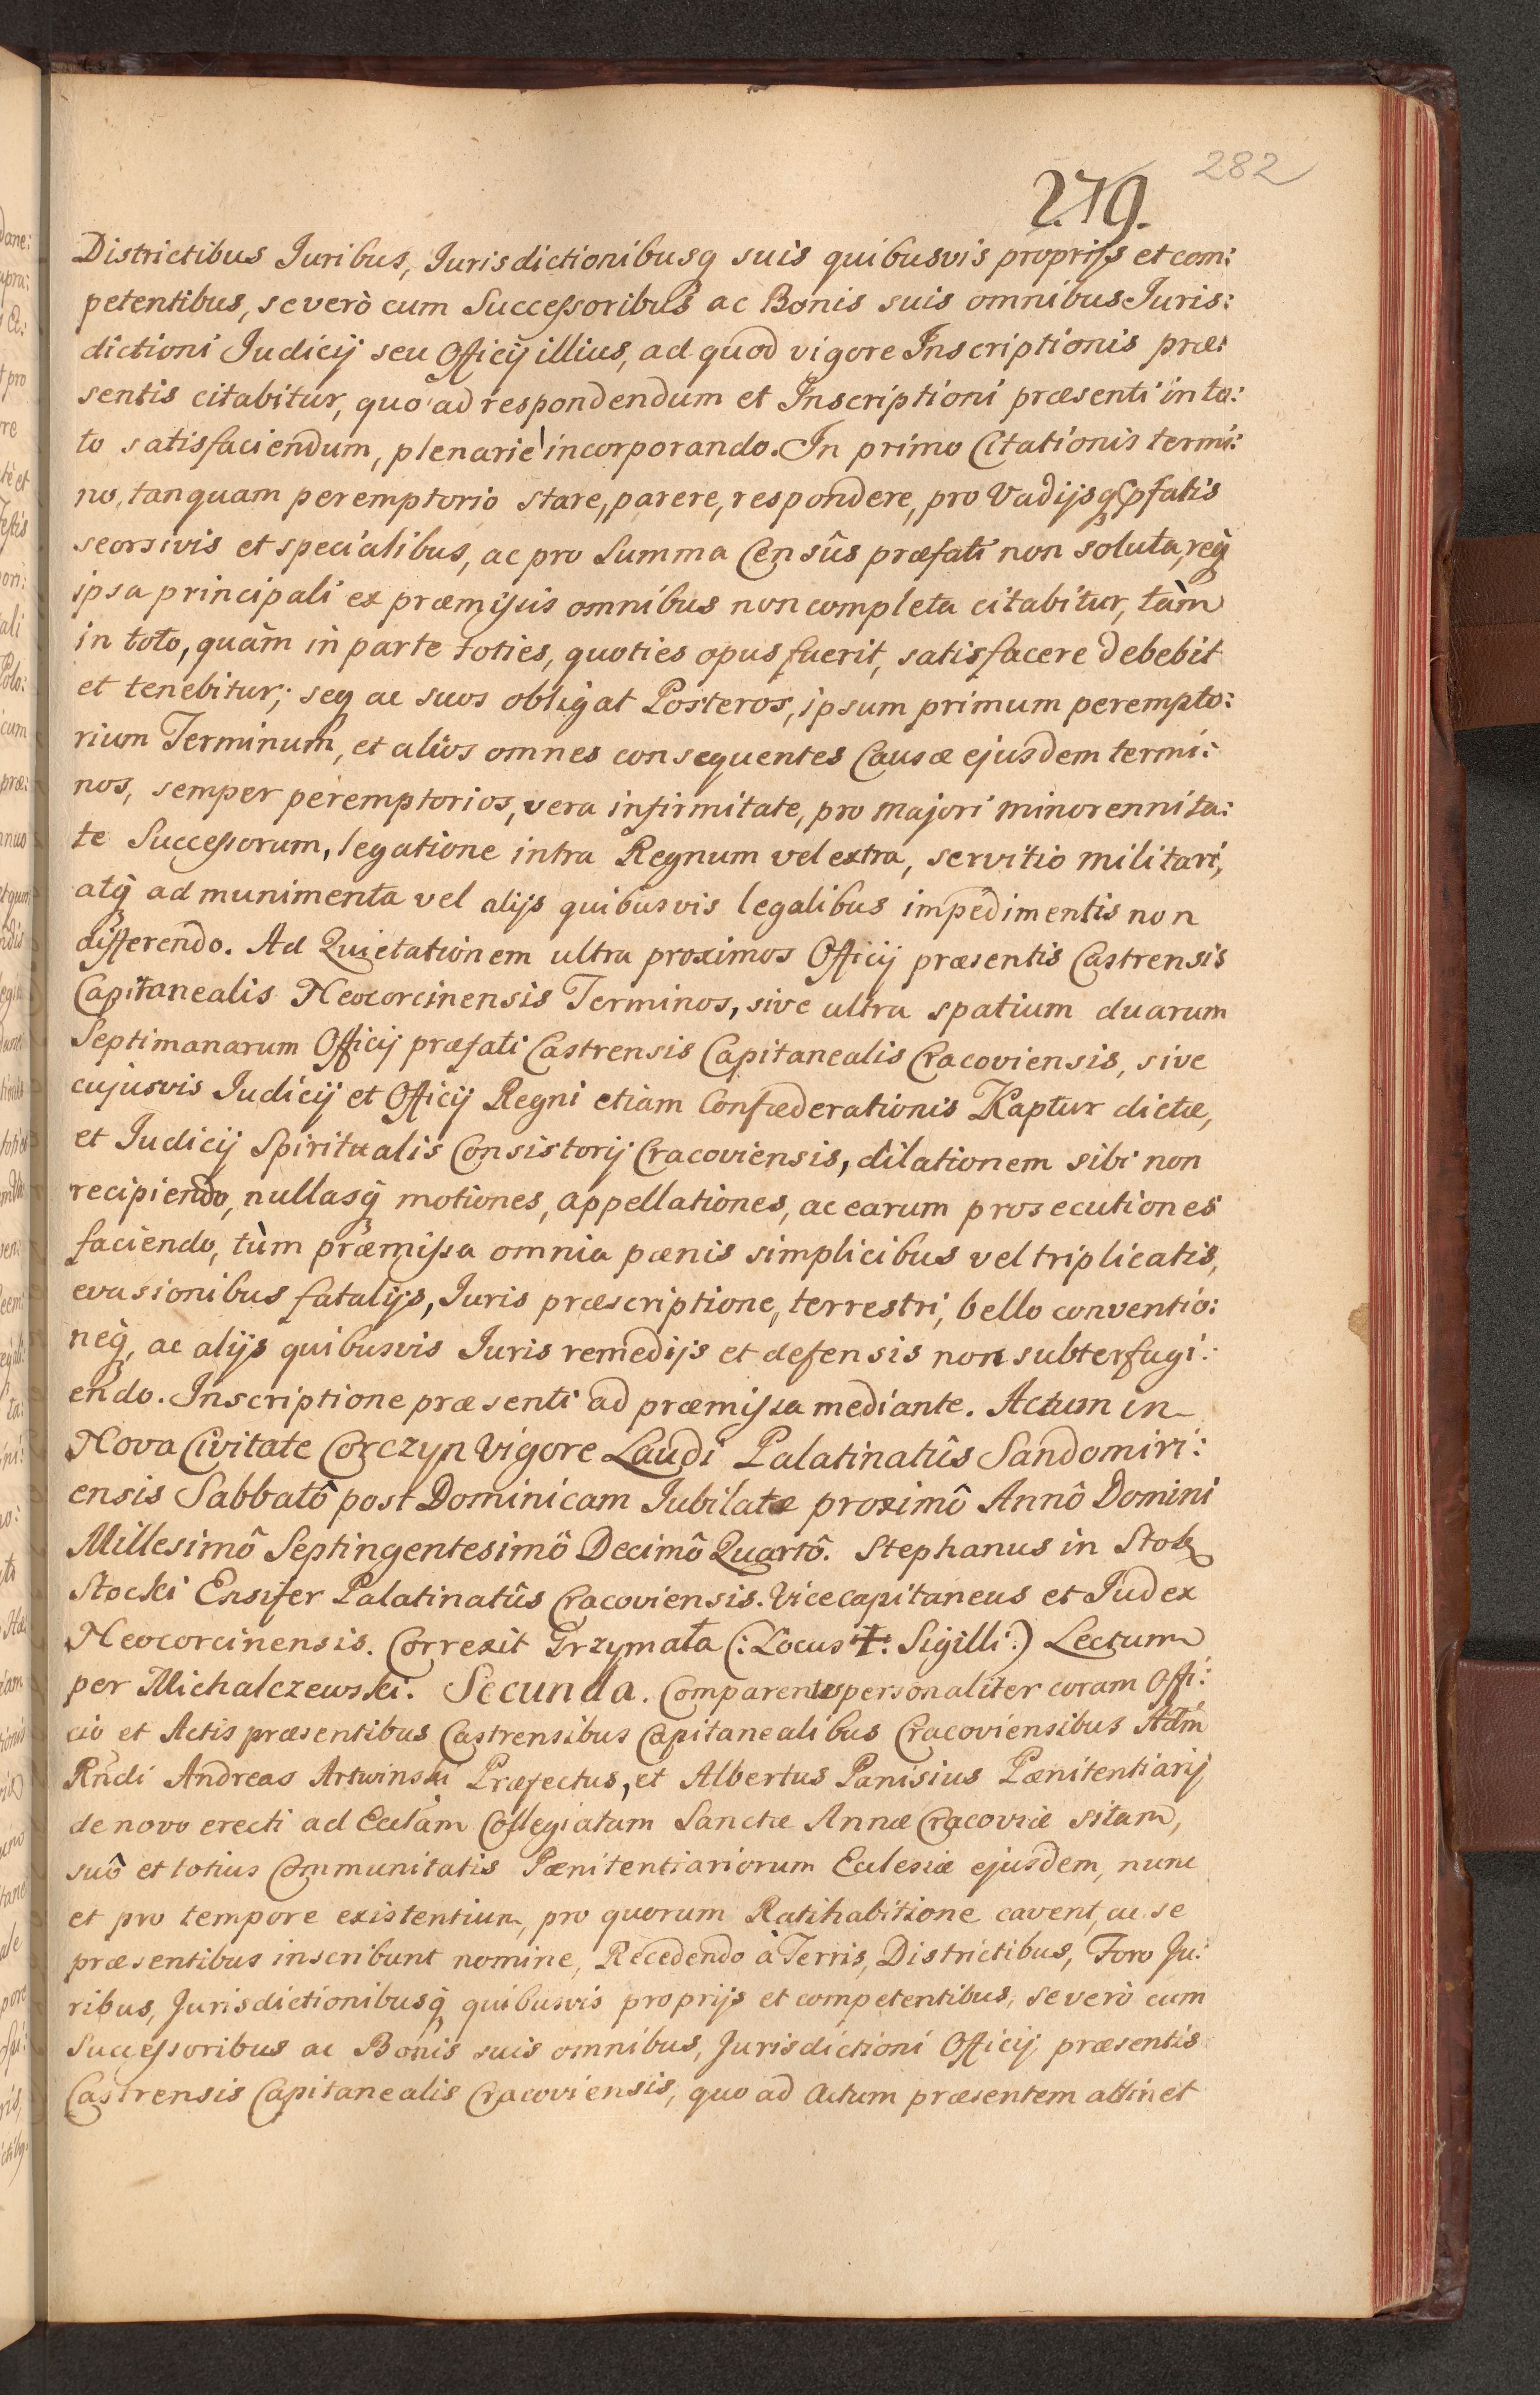 282
279.
Districtibus Iuribus, Iurisdictionibusq suis quibusvis proprijs et com:
petentibus, se verò cum Successoribus ac Bonis suis omnibus Iuris:
dictioni Iudicij seu Officij illius, ad quod vigore Inscriptionis præ:
sentis citabitur, quo ad respondendum et Inscriptioni præsenti in to:
to satisfaciendum, plenariè incorporando. In primo Citationis termi:
no, tanquam peremptorio stare, parere, respondere, pro Vadijs pfatis
seorsivis et specialibus, ac pro Summa Censûs præfati non soluta, req̃
ipsa principali ex præmissis omnibus non completa citabitur, tàm
in toto, quàm in parte toties, quoties opus fuerit, satisfacere debebit
et tenebitur; seq ac suos obligat Posteros, ipsum primum perempto:
rium Terminum, et alios omnes consequentes Causæ ejusdem termi:
nos, semper peremptorios, vera infirmitate, pro majori minorennita:
te Successorum, legatione intra Regnum vel extra, servitio militari,
atq̃ ad munimenta vel alijs quibusvis legalibus impedimentis non
differendo. Ad Quietationem ultra proximos Officij præsentis Castrensis
Capitanealis Neocorcinensis Terminos, sive ultra spatium duarum
Septimanarum Officij præfati Castrensis Capitanealis Cracoviensis, sive
cujusvis Iudicij et Officij Regni etiam Confæderationis Kaptur dictæ,
et Iudicij Spiritualis Consistorij Cracoviensis, dilationem sibi non
recipiendo, nullasq̃ motiones, appellationes, ac earum prosecutiones
faciendo, tùm præmissa omnia pœnis simplicibus vel triplicatis,
evasionibus fatalijs, Iuris præscriptione, terrestri, bello conventio:
neq̃, ac alijs quibusvis Iuris remedijs et defensis non subterfugi:
endo. Inscriptione præsenti ad præmissa mediante. Actum in
Nova Civitate Corczyn vigore Laudi Palatinatûs Sandomiri:
ensis Sabbatô post Dominicam Iubilate proximô Annô Domini
Millesimô Septingentesimô Decimô Quartô. Stephanus in Stok
Stocki Ensifer Palatinatûs Cracoviensis. Vicecapitaneus et Iudex
Neocorcinensis. Correxit Grzymała (: Locus ‡. Sigilli:) Lectum
per Michalczewski. Secunda. Comparentes personaliter coram Offi:
cio et Actis præsentibus Castrensibus Capitanealibus Cracoviensibus Adm̃
Rñdi Andreas Artwinski Præfectus, et Albertus Panisius Pænitentiarij
de novo erecti ad Ecclãm Collegiatam Sanctæ Annæ Cracoviæ sitam,
suô et totius Communitatis Pænitentiariorum Ecclesiæ ejusdem, nunc
et pro tempore existentium, pro quorum Ratihabitione cavent, ac se
præsentibus inscribunt nomine, Recedendo à Terris, Districtibus, Foro Ju:
ribus, Jurisdictionibusq̃ quibusvis proprijs et competentibus, se verò cum
Successoribus ac Bonis suis omnibus, Jurisdictioni Officij præsentis
Castrensis Capitanealis Cracoviensis, quo ad Actum præsentem attinet